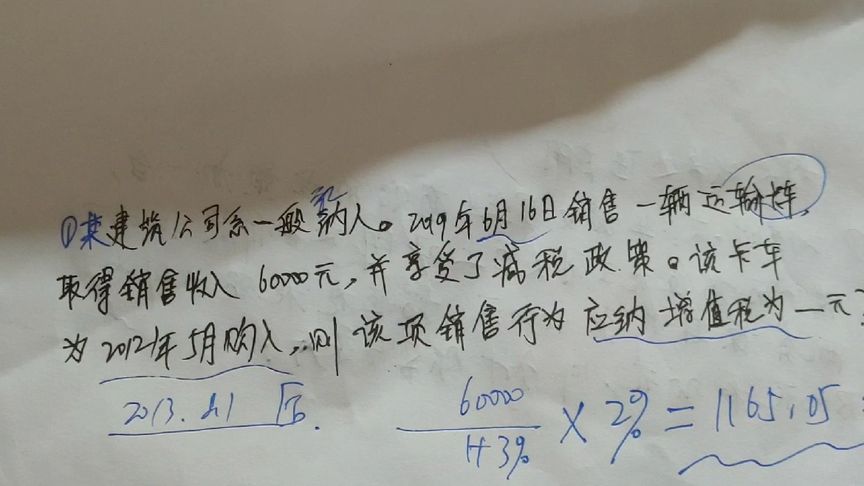 ①某建筑公司系一般税纳人。2019年6月16日销售一辆运输卡车,
取得销售收入 60000元,并享受了减税政策。该卡车
为2012年5月购入,则该项销售行为应纳增值税为—元?
2013.8.1 后.
60000/1+3% × 2% = 1165.05